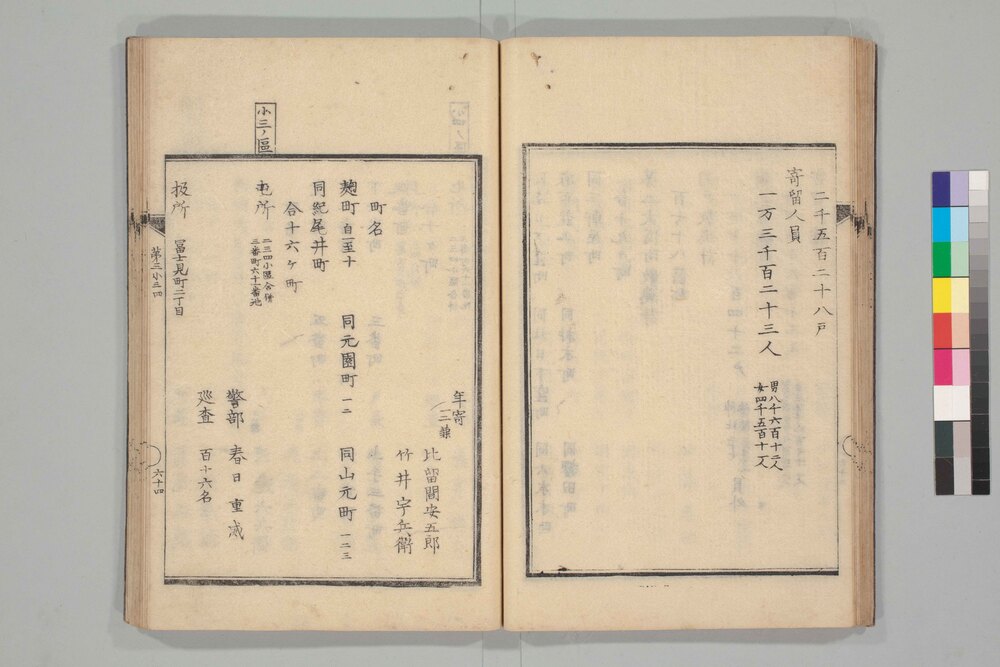 二千五百二十八戸
寄留人員
一万三千百二十三人
男八千六百十二人
女四千五百十一人
年寄
二兼
比留間安五郎
竹井宇兵衛
町名
麹町 自一至十 同元園町 一二 同山元町 一二三
同紀尾井町
合十六ヶ町
小三ノ區
屯所 二三四小區合併
三番町六十一番地
警部 春日重威
巡査 百十六名
扱所 冨士見町二丁目
第三小三四
六十四